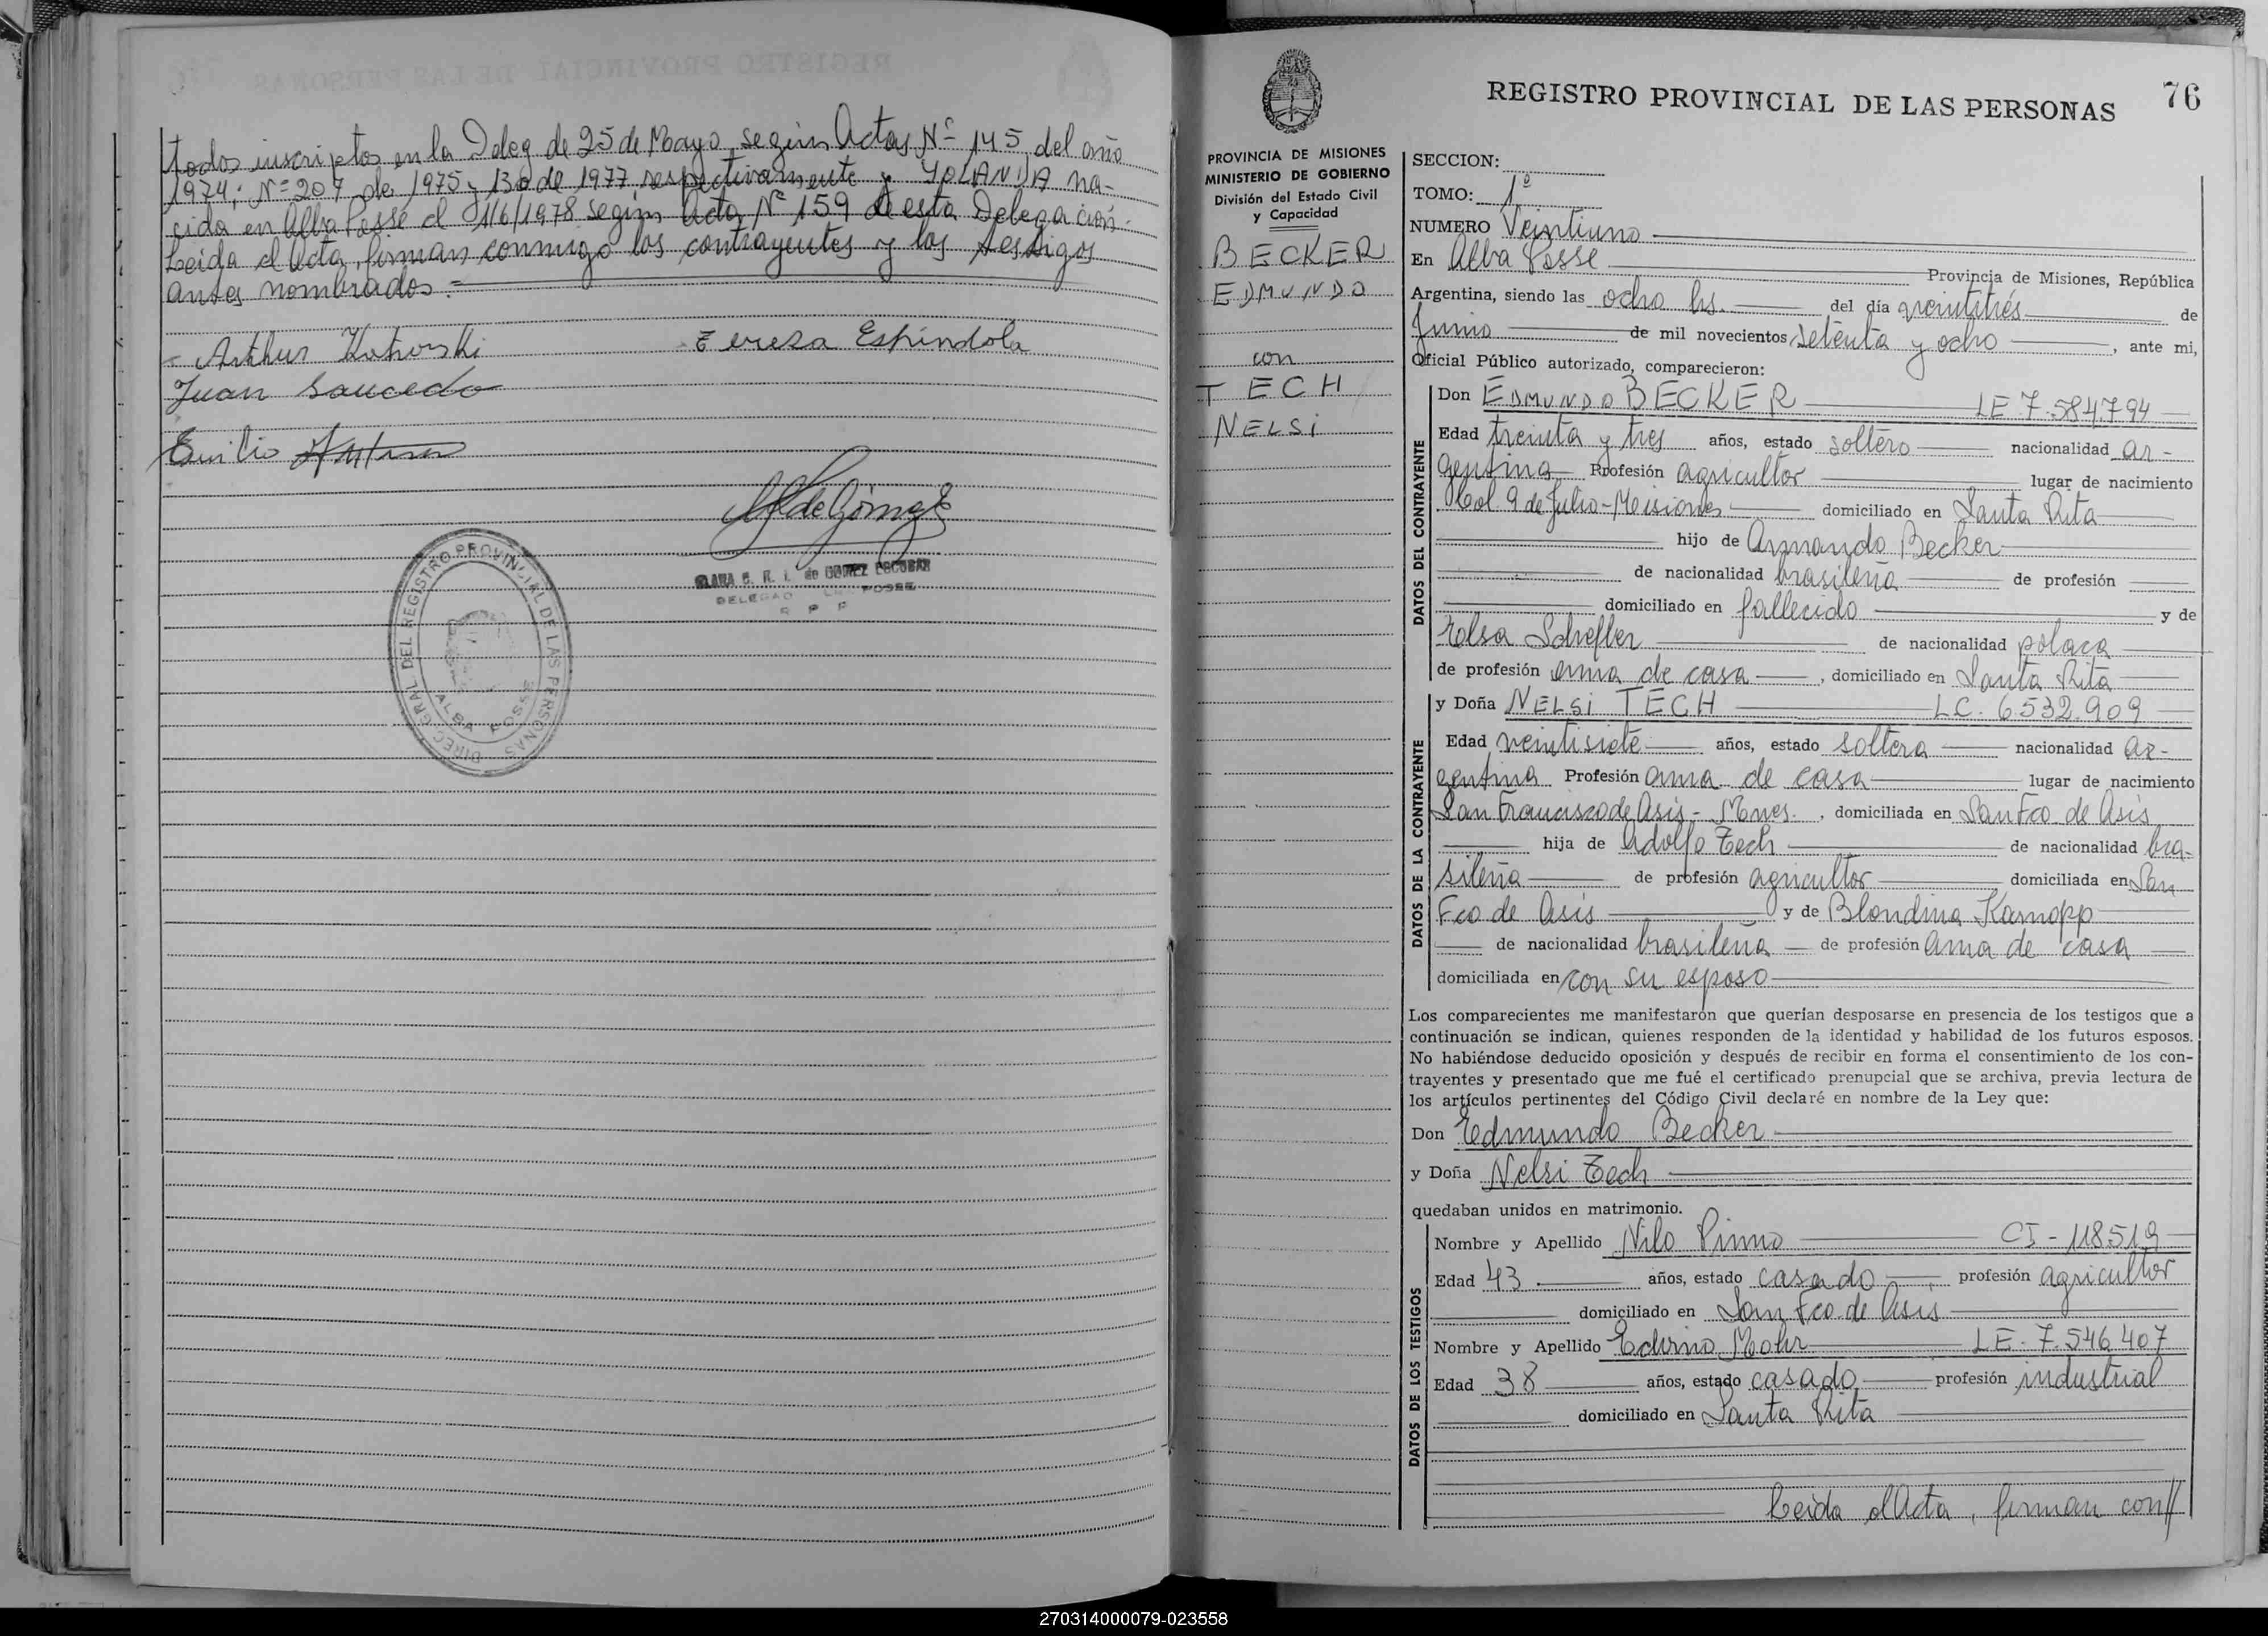 todos inscriptos en la Deleg de 25 de Mayo, según Actas Nº 145 del año
1974; Nº 207 de 1975 y 130 de 1977 respectivamente y YOLANDA na-
cida en Alba Posse el 1/6/1978 según Acta Nº 159 de esta Delegación.
Leída el Acta, firman conmigo los contrayentes y los testigos
antes nombrados.=
Arthur Kotroski
Teresa Espíndola
Juan Saucedo
Emilio
de Gómez
CLARA S. R. L. de GOMEZ ESCOBAR
DELEGAD POSSE
R P P
DIREC. GRAL. DEL REGISTRO PROVINCIAL DE LAS PERSONAS
ALBA POSSE
REGISTRO PROVINCIAL DE LAS PERSONAS
76
PROVINCIA DE MISIONES
MINISTERIO DE GOBIERNO
División del Estado Civil
y Capacidad
BECKER
EDMUNDO
con
TECH
NELSI
SECCION:
TOMO: 1º
NUMERO Veintiuno
En Alba Posse Provincia de Misiones, República
Argentina, siendo las ocho hs. del día veintitrés de
Junio de mil novecientos setenta y ocho, ante mi,
Oficial Público autorizado, comparecieron:
DATOS DEL CONTRAYENTE
Don EDMUNDO BECKER LE 7.584.794
Edad treinta y tres años, estado soltero nacionalidad ar-
gentina Profesión agricultor lugar de nacimiento
Col. 9 de Julio-Misiones domiciliado en Santa Rita
hijo de Armando Becker
de nacionalidad brasileña de profesión
domiciliado en fallecido y de
Elsa Scheffler de nacionalidad polaca
de profesión ama de casa, domiciliado en Santa Rita
DATOS DE LA CONTRAYENTE
y Doña NELSI TECH LC. 6.532.909
Edad veintisiete años, estado soltera nacionalidad ar-
gentina Profesión ama de casa lugar de nacimiento
San Francisco de Asís - Mnes., domiciliada en San Fco. de Asís
hija de Adolfo Tech de nacionalidad bra-
sileña de profesión agricultor domiciliada en San
Fco de Asís y de Blondina Karnopp
de nacionalidad brasileña de profesión ama de casa
domiciliada en con su esposo
Los comparecientes me manifestaron que querían desposarse en presencia de los testigos que a
continuación se indican, quienes responden de la identidad y habilidad de los futuros esposos.
No habiéndose deducido oposición y después de recibir en forma el consentimiento de los con-
trayentes y presentado que me fué el certificado prenupcial que se archiva, previa lectura de
los artículos pertinentes del Código Civil declaré en nombre de la Ley que:
Don Edmundo Becker
y Doña Nelsi Tech
quedaban unidos en matrimonio.
DATOS DE LOS TESTIGOS
Nombre y Apellido Nilo Pinno CI - 118519
Edad 43 años, estado casado profesión agricultor
domiciliado en San Fco. de Asís
Nombre y Apellido Edvino Mohr LE. 7.546.407
Edad 38 años, estado casado profesión industrial
domiciliado en Santa Rita
Leída el Acta, firman con//
270314000079-023558